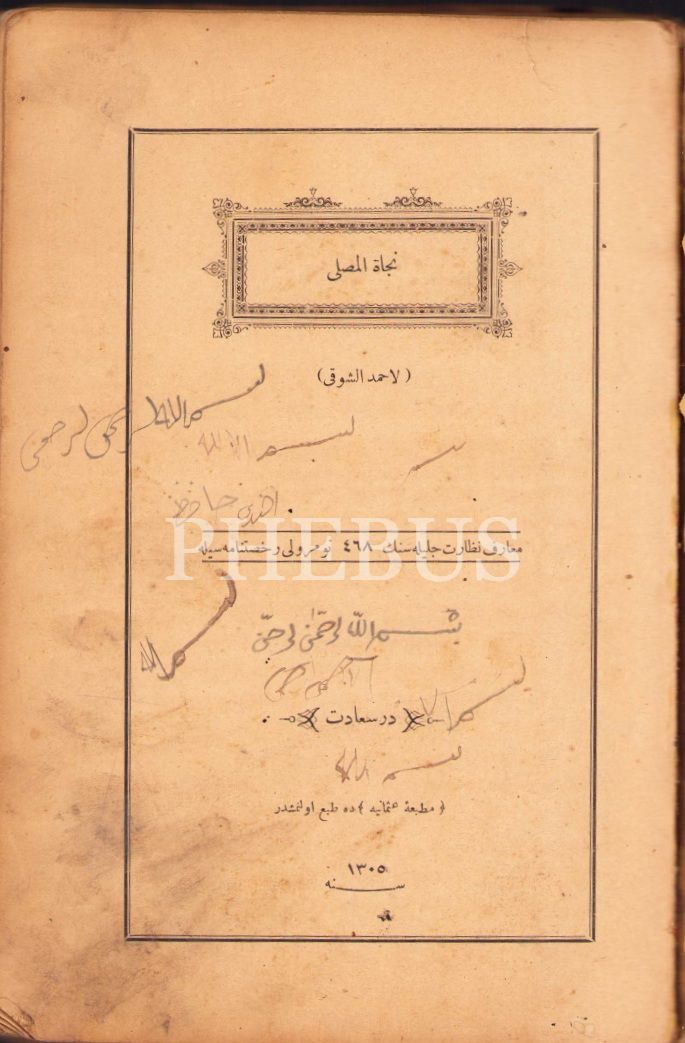 نجاة المصلى
(لاحمد الشوقى)
بسم الله الرحمن الرحيم
بسم الله
بسم
حافظ
معارف نظارت جليله سنك ٤٦٨ نومرولى رخصتنامه سيله
PHEBUS
بسم الله
بسم الله الرحمن الرحيم
در سعادت
بسم الله
(مطبعۀ عثمانيه) ده طبع اولنمشدر
١٣٠٥
سنه